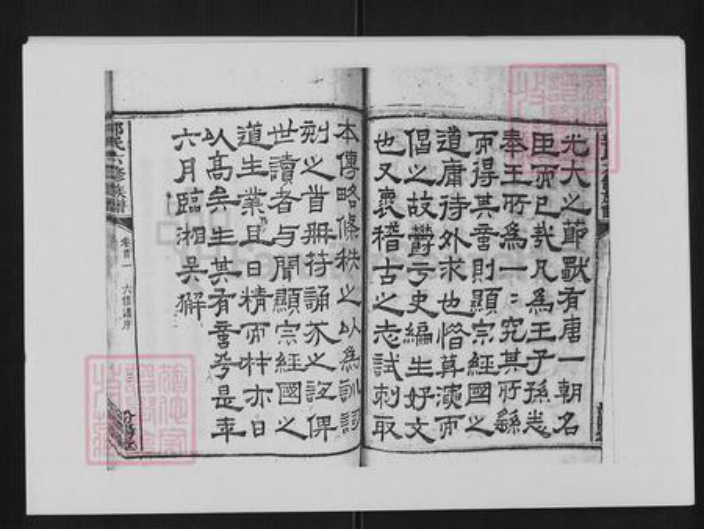 光大之節獸有唐一朝名
臣而已哉凡為王子孫志
奉王所為一二究其所繇
而得其意則顯宗經國之
道庸待外求也惜算演而
倡之故鬱于史編生好文
也又裒稽古之志試刺取
本傳略條秩之以為訓詞
刻之首冊待誦芥之詔俾
世讀者与聞顯宗經國之
道生業且日精而材亦日
以高矣生其有意乎是年
六月臨湘吳獬
氏六修族譜
卷首一
六修譜序